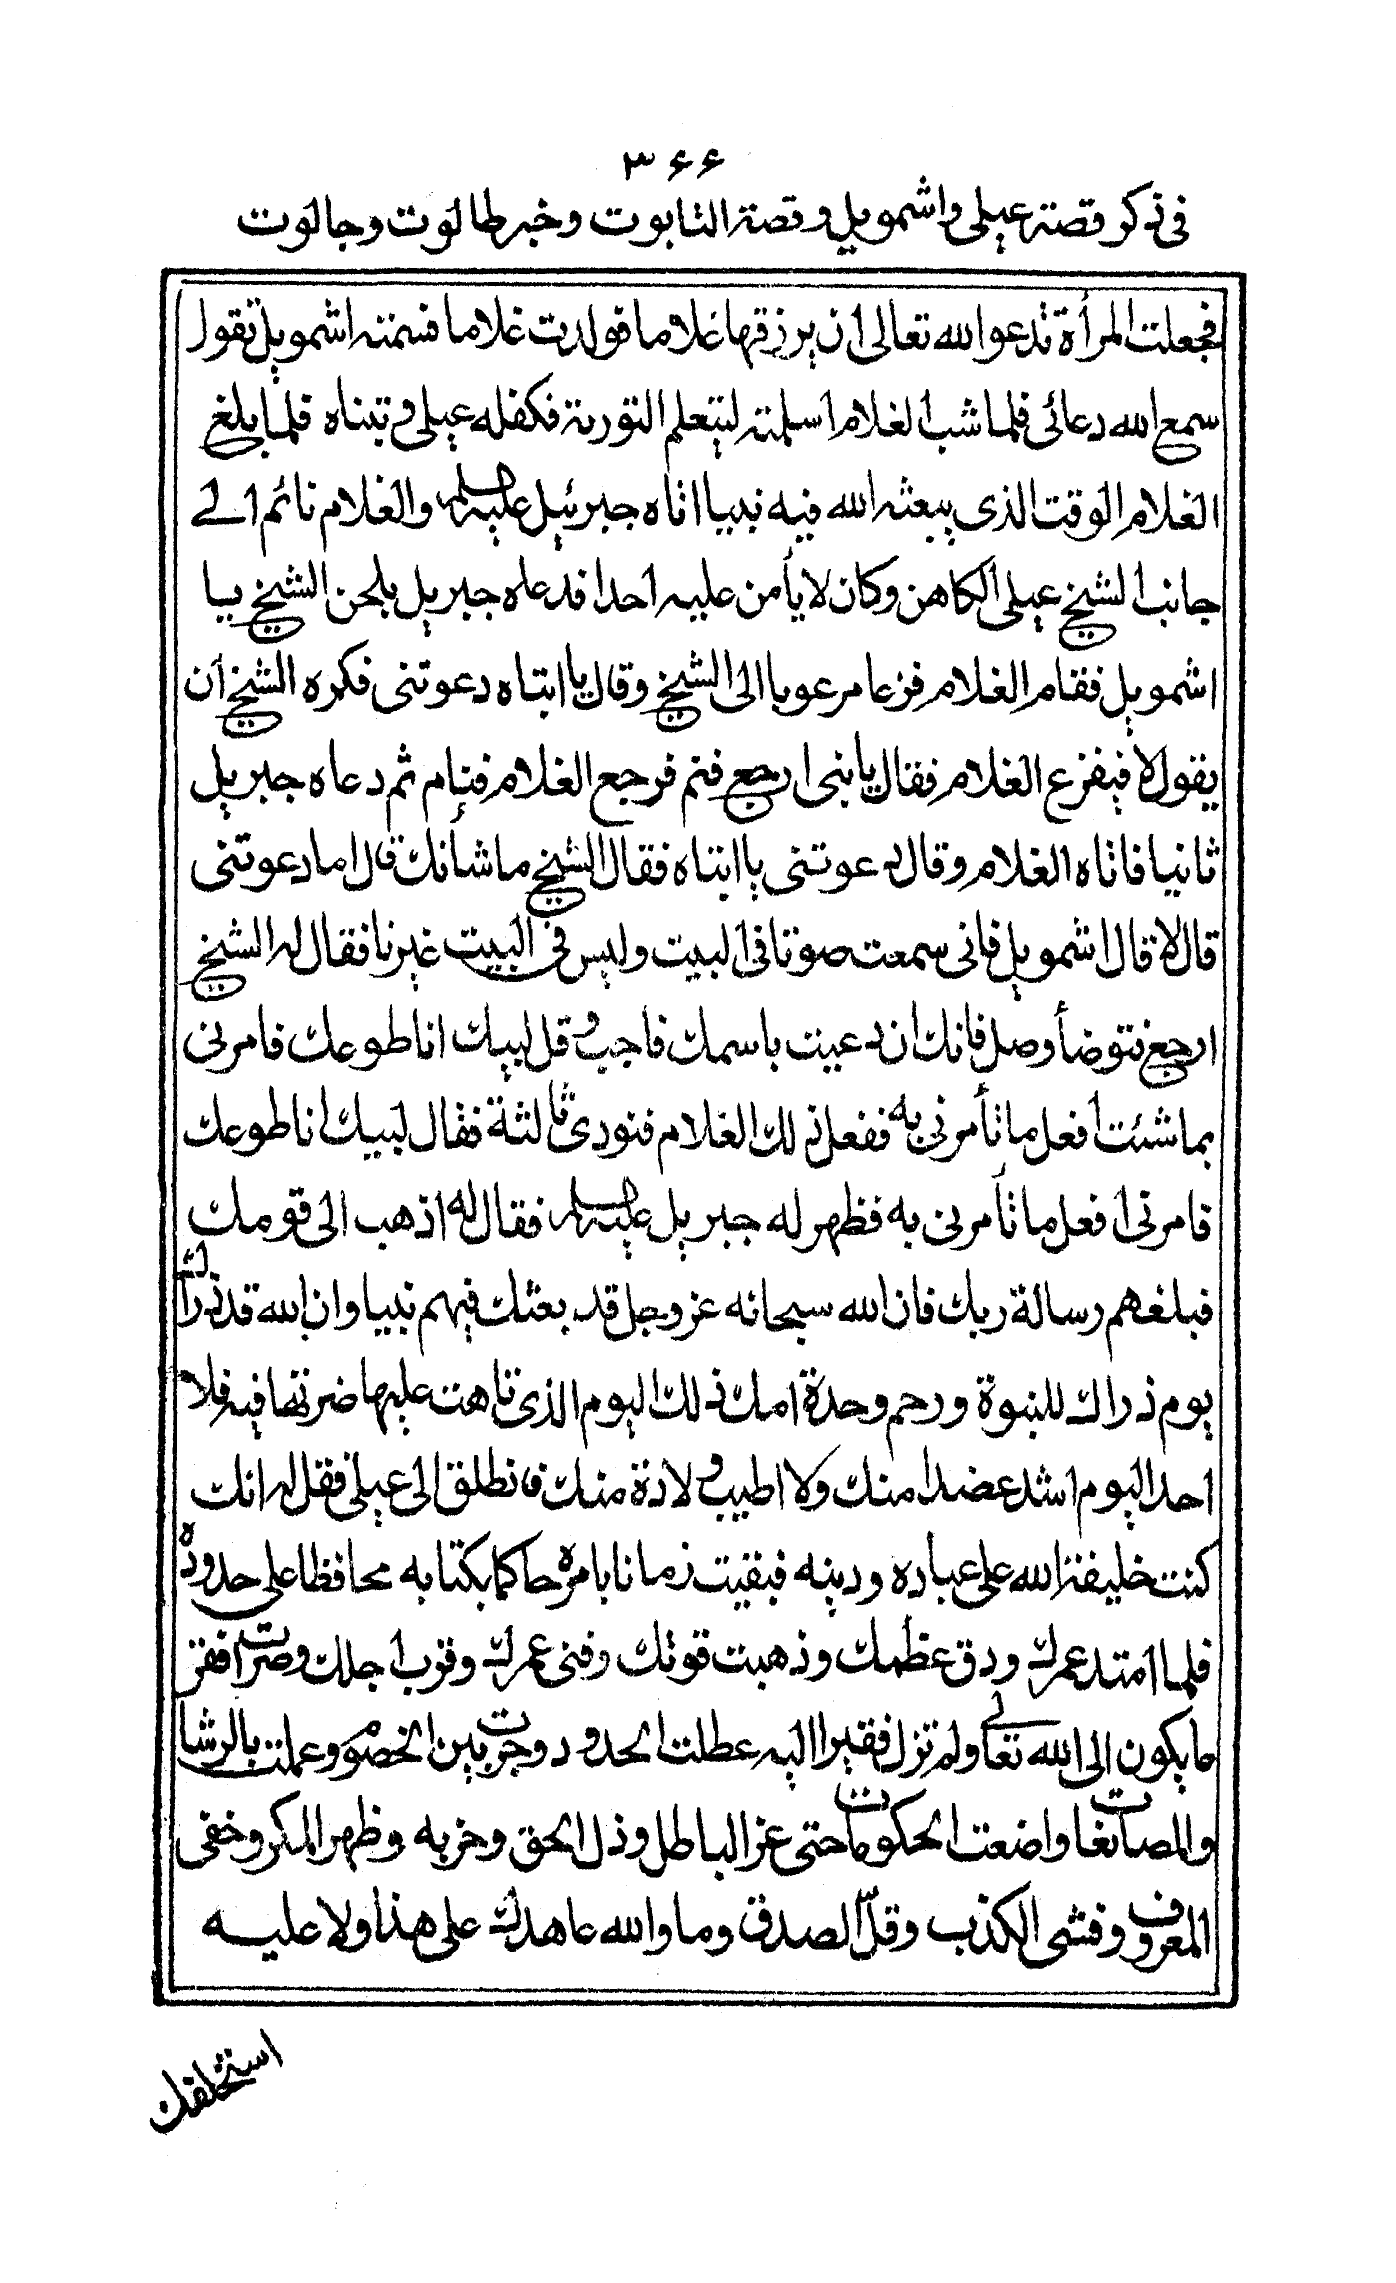 ۳۶۶
فى ذكر قصة عيلى واشمويل وقصة التابوت وخبر طالوت وجالوت
فجعلت المرأة تدعو الله تعالى ان يرزقها غلاما فولدت غلاما فسمته اشمويل تقول
سمع الله دعائى فلما شب الغلام اسلمته ليتعلم التورية فكفله عيلى وتبناه فلما بلغ
الغلام الوقت الذى يبعثه الله فيه نبيا اتاه جبرئيل عليه السلم والغلام نائم الى
جانب الشيخ عيلى الكاهن وكان لا يأمن عليه احدا فدعاه جبريل بلحن الشيخ يا
اشمويل فقام الغلام فزعا مرعوبا الى الشيخ وقال يا ابتاه دعوتنى فكره الشيخ ان
يقول لا فيفزع الغلام فقال يا بنى ارجع فنم فرجع الغلام فنام ثم دعاه جبريل
ثانيا فاتاه الغلام وقال دعوتنى يا ابتاه فقال الشيخ ما شأنك قال اما دعوتنى
قال لا قال اشمويل فانى سمعت صوتا فى البيت وليس فى البيت غيرنا فقال له الشيخ
ارجع فتوضأ وصل فانك ان دعيت باسمك فاجب وقل لبيك انا طوعك فامرنى
بما شئت أفعل ما تأمرنى به ففعل ذلك الغلام فنودى ثالثة فقال لبيك انا طوعك
فامرنى أفعل ما تأمرنى به فظهر له جبريل عليه السلم فقال له اذهب الى قومك
فبلغهم رسالة ربك فان الله سبحانه عز وجل قد بعثك فيهم نبيا وان الله قد ذرأك
يوم ذراك للنبوة ورحم وحدة امك ذلك اليوم الذى تاهت عليها ضرتها فيه فلا
احد اليوم اشد عضدا منك ولا اطيب ولادة منك فانطلق الى عيلى فقل له انك
كنت خليفة الله على عباده ودينه فبقيت زمانا بامره حاكما بكتابه محافظا على حدوده
فلما امتد عمرك ودق عظمك وذهبت قوتك وفنى عمرك وقرب اجلك وصرت افقر
ما يكون الى الله تعالى ولم تزل فقيرا اليه عطلت الحدود وجرت بين الخصوم وعملت بالرشا
والمصانعات واضعت الحكومات حتى عز الباطل وذل الحق وحزبه وظهر المكر وخفى
المعروف وفشى الكذب وقلّ الصدق وما والله عاهدك على هذا ولا عليه
استخلفك